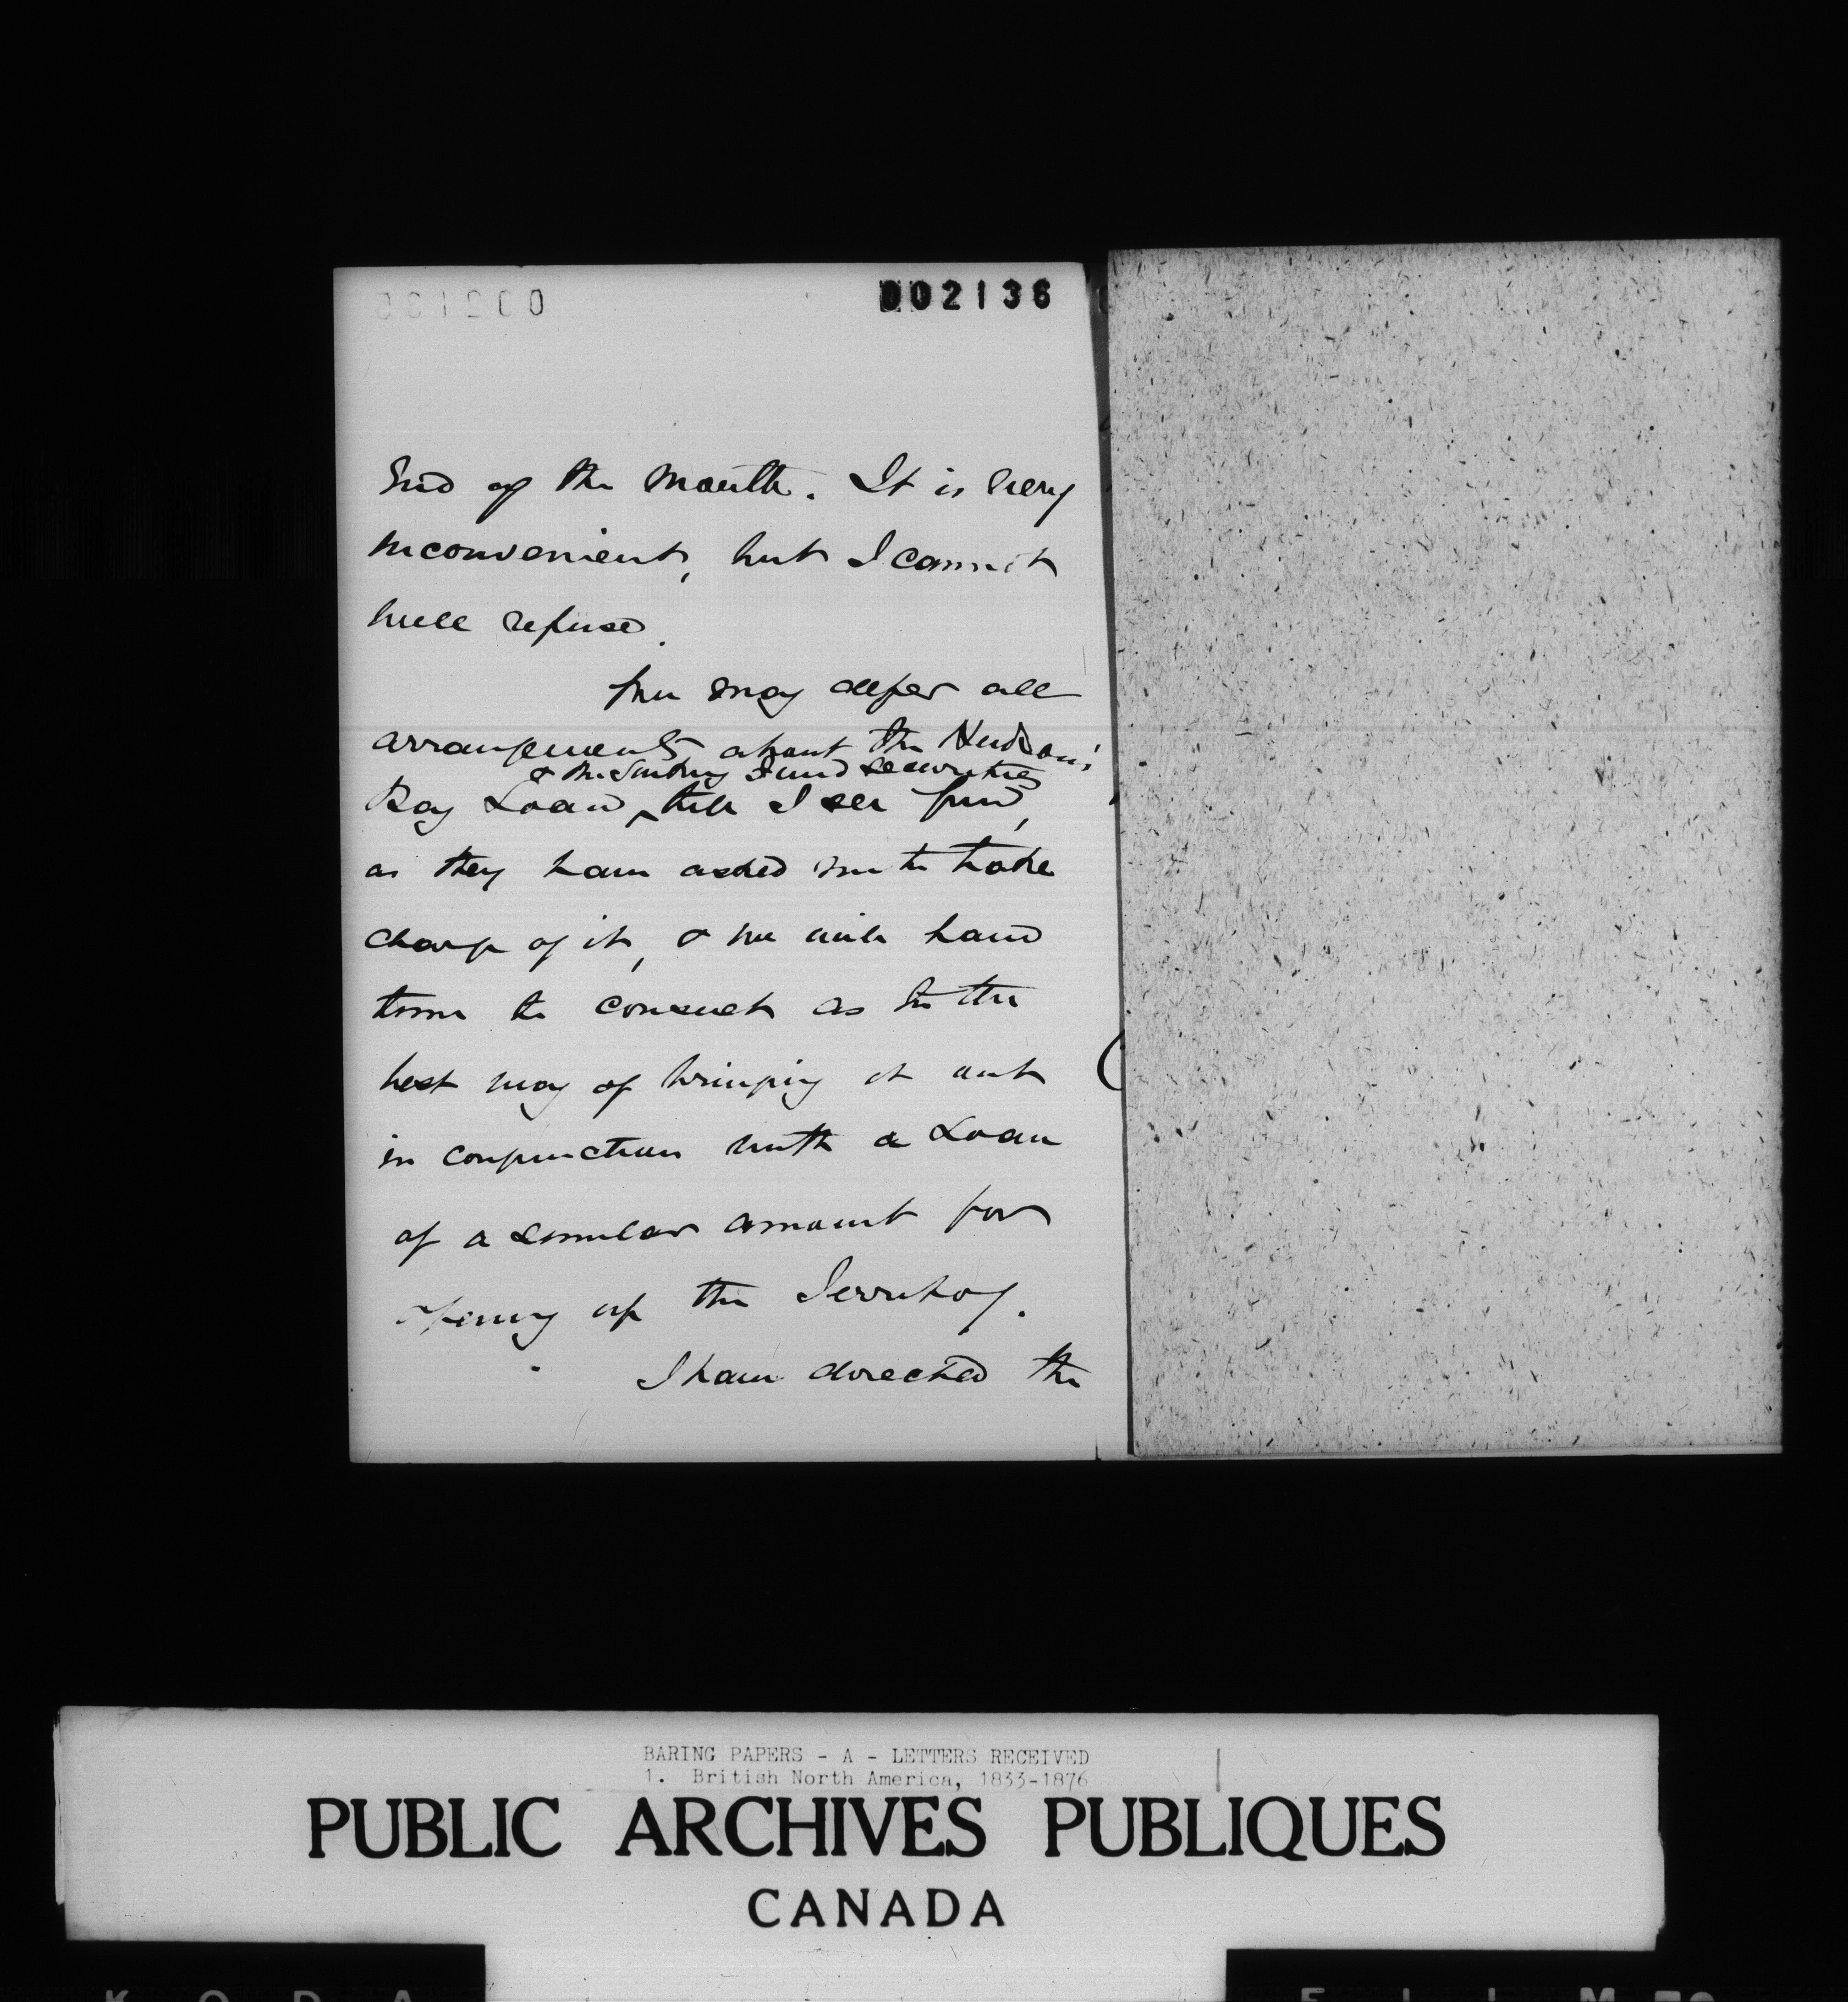 002136
End of the month. It is very
inconvenient, but I cannot
well refuse.
You may defer all
arrangements about the Hudson's
& the Sinking Fund securities
Bay Loan till I see you,
as they have asked me to take
charge of it, & we will have
time to consult as to the
best way of bringing it out
in conjunction with a Loan
of a similar amount for
opening up the Territory.
I have directed the
BARING PAPERS - A - LETTERS RECEIVED
1. British North America, 1833-1876
PUBLIC ARCHIVES PUBLIQUES
CANADA
K O D A
F I L M